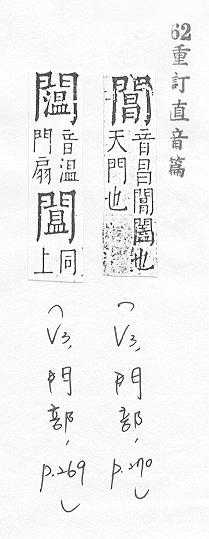 62重訂直音篇
閶
音昌閶闔也
天門也
(V3, 門部, p.270)
音温
門扇
同
上
(V3, 門部, p.269)